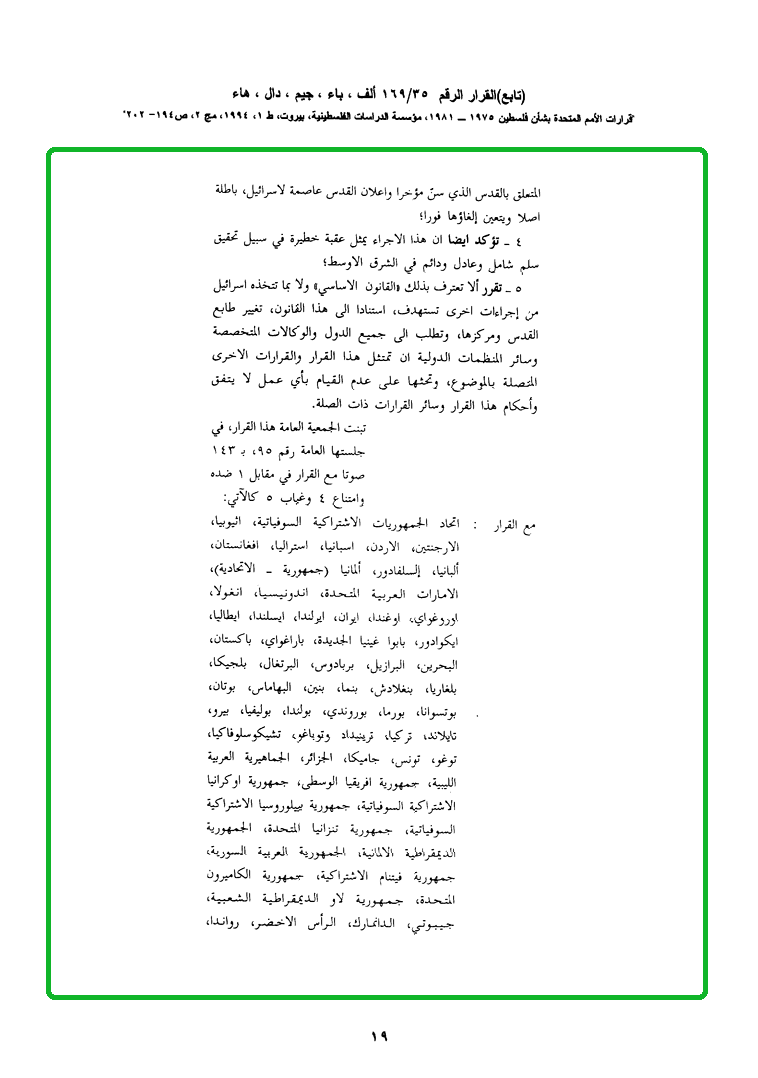 (تابع)القرار الرقم ١٦٩/٣٥ ألف ، باء ، جيم ، دال ، هاء
"قرارات الأمم المتحدة بشأن فلسطين ١٩٧٥ ــ ١٩٨١، مؤسسة الدراسات الفلسطينية، بيروت، ط ١، ١٩٩٤، مج ٢، ص١٩٤- ٢٠٢"
المتعلق بالقدس الذي سنّ مؤخرا واعلان القدس عاصمة لاسرائيل، باطلة
اصلا ويتعين إلغاؤها فورا؛
٤ ــ تؤكد ايضا ان هذا الاجراء يمثل عقبة خطيرة في سبيل تحقيق
سلم شامل وعادل ودائم في الشرق الاوسط؛
٥ ــ تقرر ألا تعترف بذلك «القانون الاساسي» ولا بما تتخذه اسرائيل
من إجراءات اخرى تستهدف، استنادا الى هذا القانون، تغيير طابع
القدس ومركزها، وتطلب الى جميع الدول والوكالات المتخصصة
وسائر المنظمات الدولية ان تمتثل هذا القرار والقرارات الاخرى
المتصلة بالموضوع، وتحثها على عدم القيام بأي عمل لا يتفق
وأحكام هذا القرار وسائر القرارات ذات الصلة.
تبنت الجمعية العامة هذا القرار، في
جلستها العامة رقم ٩٥، بـ ١٤٣
صوتا مع القرار في مقابل ١ ضده
وامتناع ٤ وغياب ٥ كالآتي:
مع القرار : اتحاد الجمهوريات الاشتراكية السوفياتية، اثيوبيا،
الارجنتين، الاردن، اسبانيا، استراليا، افغانستان،
ألبانيا، إلسلفادور، ألمانيا (جمهورية ــ الاتحادية)،
الامارات العربية المتحدة، اندونيسيا، انغولا،
اوروغواي، اوغندا، ايران، ايرلندا، ايسلندا، ايطاليا،
ايكوادور، بابوا غينيا الجديدة، باراغواي، باكستان،
البحرين، البرازيل، بربادوس، البرتغال، بلجيكا،
بلغاريا، بنغلادش، بنما، بنين، البهاماس، بوتان،
بوتسوانا، بورما، بوروندي، بولندا، بوليفيا، بيرو،
تايلاند، تركيا، ترينيداد وتوباغو، تشيكوسلوفاكيا،
توغو، تونس، جاميكا، الجزائر، الجماهيرية العربية
الليبية، جمهورية افريقيا الوسطى، جمهورية اوكرانيا
الاشتراكية السوفياتية، جمهورية بييلوروسيا الاشتراكية
السوفياتية، جمهورية تنزانيا المتحدة، الجمهورية
الديمقراطية الالمانية، الجمهورية العربية السورية،
جمهورية فيتنام الاشتراكية، جمهورية الكاميرون
المتحدة، جمهورية لاو الديمقراطية الشعبية،
جيبوتي، الدانمارك، الرأس الاخضر، رواندا،
١٩